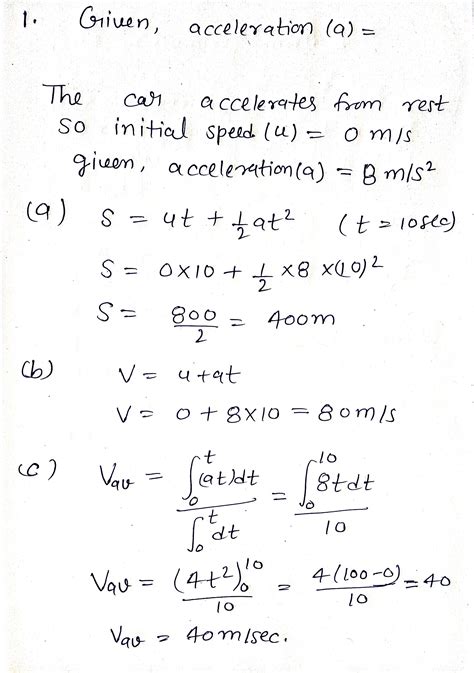 1. Given, acceleration (a) =
The car accelerates from rest
so initial speed (u) = 0 m/s
given, acceleration(a) = 8 m/s²
(a) S = ut + 1/2 at² (t = 10sec)
S = 0×10 + 1/2 ×8 ×(10)²
S = 800/2 = 400m
(b) V = u+at
V = 0 + 8×10 = 80m/s
(c) Vav = ∫₀ᵗ(at)dt / ∫₀ᵗdt = ∫₀¹⁰8tdt / 10
Vav = (4t²)₀¹⁰ / 10 = 4(100-0) / 10 = 40
Vav = 40m/sec.